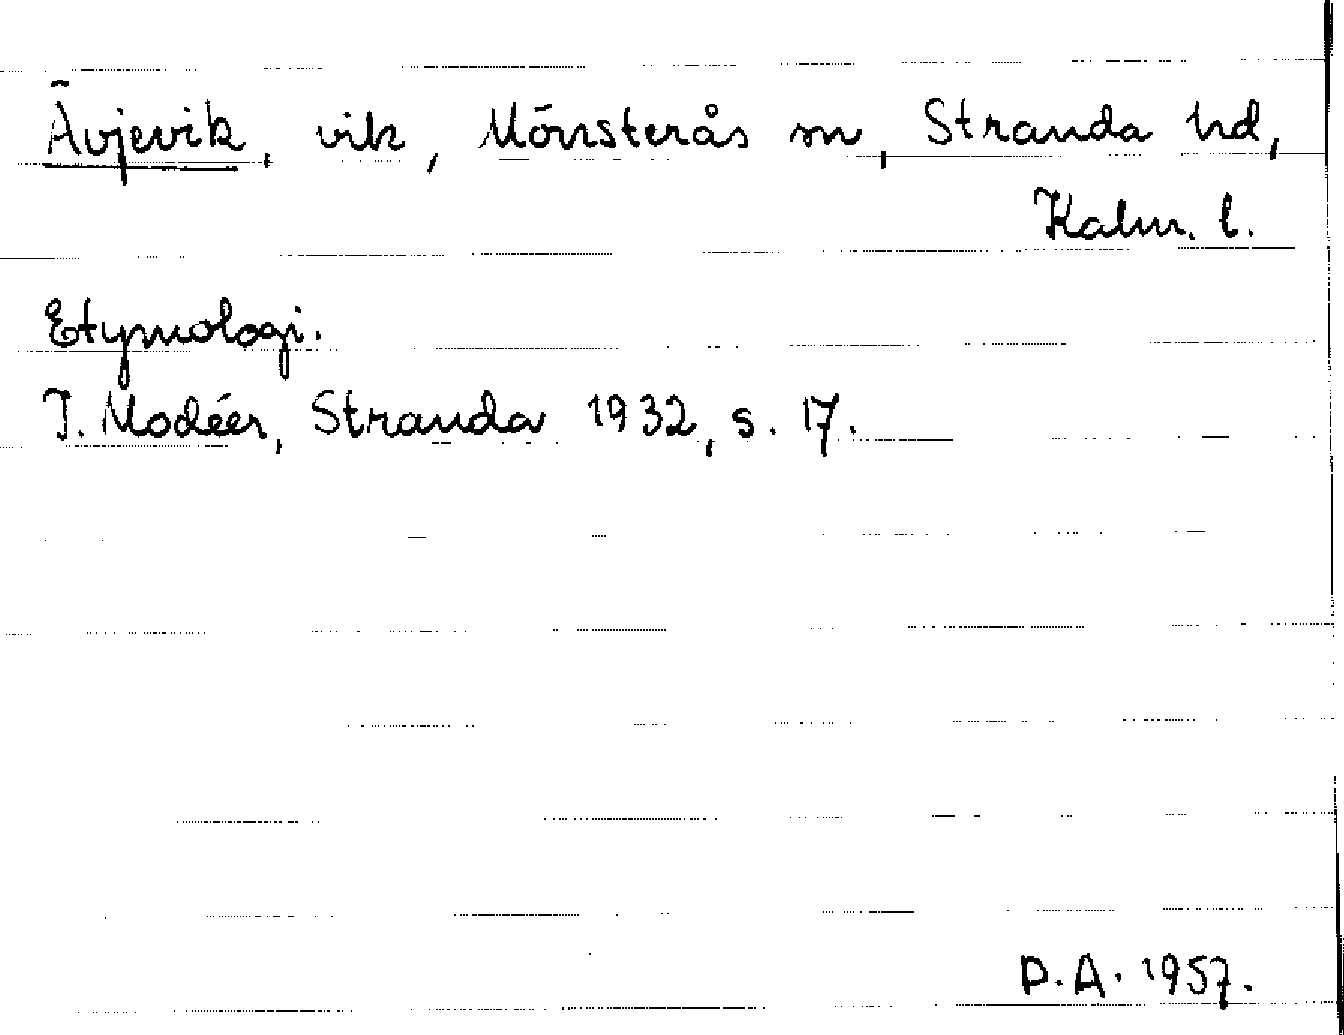 Ävjevik, vik, Mönsterås sn, Stranda hd,
Kalm. l.
Etymologi.
I. Modéer, Stranda 1932, s. 17.
D.A. 1957.